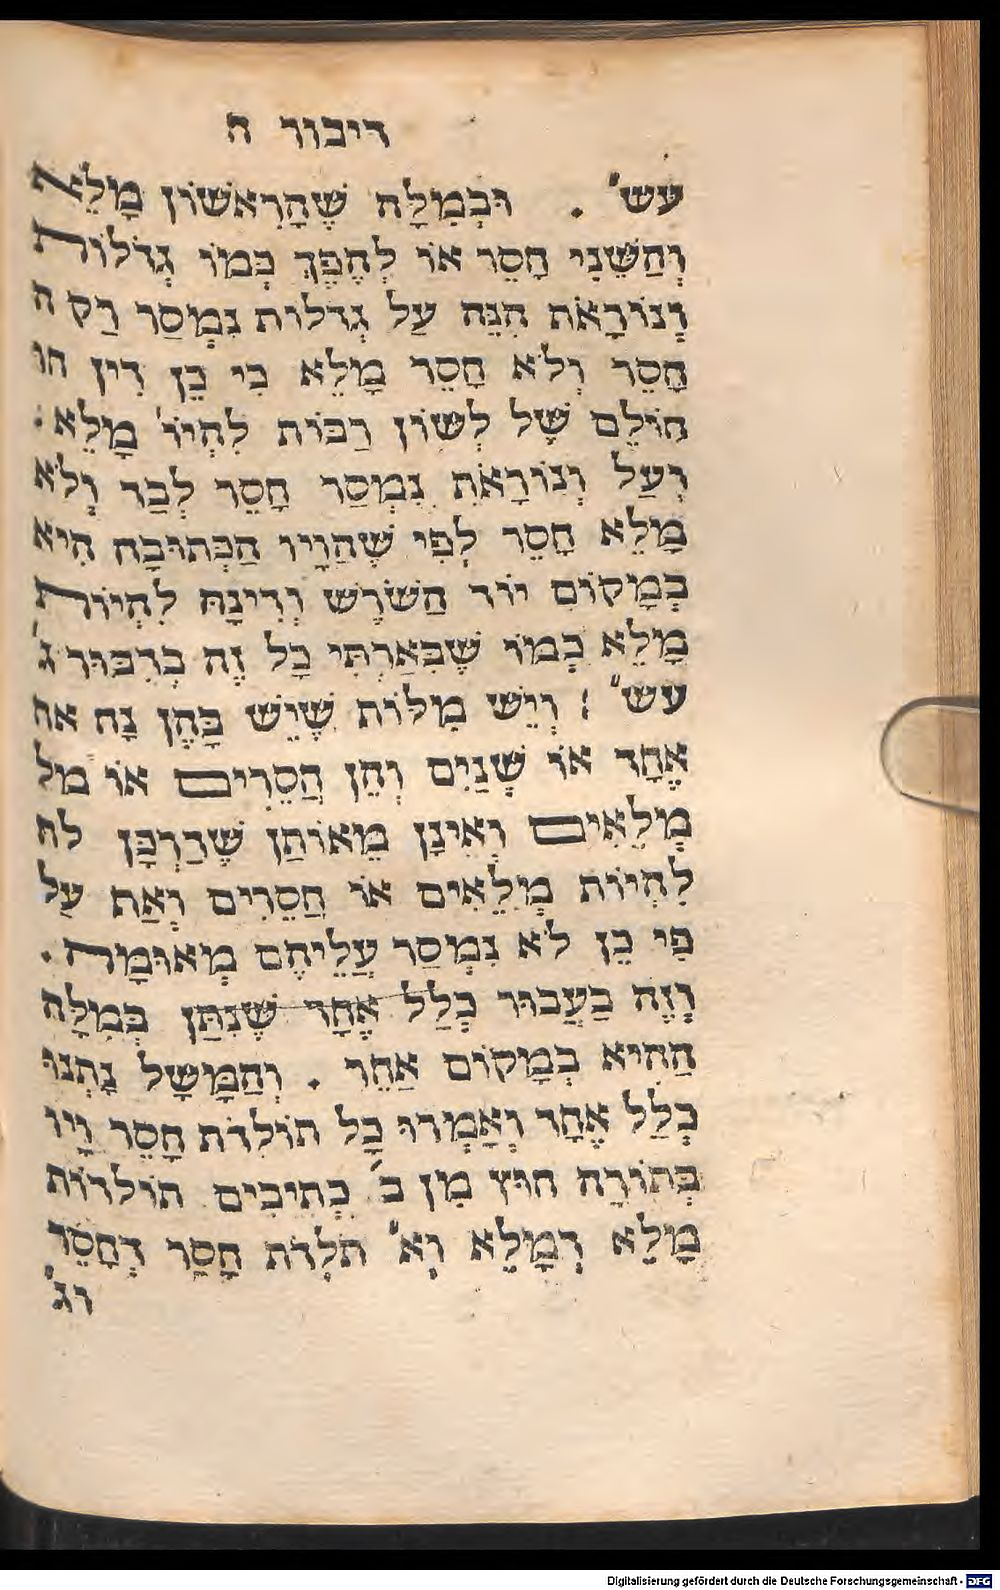 דיבור ה
עש׳ . וּבְמִלָּה שֶׁהָרִאשׁוֹן מָלֵא
וְהַשֵּׁנִי חָסֵר אוֹ לְהֶפֶךְ כְּמוֹ גְדֹלוֹת
וְנוֹרָאֹת הִנֵּה עַל גְּדֹלוֹת נִמְסַר רַק ח
חָסֵר וְלֹא חָסֵר מָלֵא כִּי כֵן דִּין חו
חוֹלֵם שֶׁל לְשׁוֹן רַבּוֹת לִהְיוֹ׳ מָלֵא .
וְעַל וְנוֹרָאֹת נִמְסַר חָסֵר לְבַד וְלֹא
מָלֵא חָסֵר לְפִי שֶׁהַוָיו הַכְּתוּבָה הִיא
בְּמָקוֹם יוֹד הַשֹּׁרֶשׁ וְדִינָהּ לִהְיוֹת
מָלֵא כְּמוֹ שֶׁבֵּאַרְתִּי כָל זֶה בְּדִבּוּר ג׳
עש׳ : וְיֵשׁ מִלּוֹת שֶׁיֵּשׁ בָּהֶן נָח אח
אֶחָד אוֹ שְׁנַיִם וְהֵן חֲסֵרִים אוֹ מל
מְלֵאִים וְאֵינָן מֵאוֹתָן שֶׁדַּרְכָּן לה
לִהְיוֹת מְלֵאִים אוֹ חֲסֵרִים וְאַף עַל
פִּי כֵן לֹא נִמְסַר עֲלֵיהֶם מְאוּמָה .
וְזֶה בַּעֲבוּר כְּלָל אֶחָד שֶׁנִּתַּן בְּמִלָּה
הַהִיא בְּמָקוֹם אַחֵר . וְהַמָּשָׁל נָתְנוּ
כְּלָל אֶחָד וְאָמְרוּ כָל תּוֹלְדֹת חָסֵר וָיו
בְּתוֹרָה חוּץ מִן ב׳ כְּתִיבִים תּוֹלְדוֹת
מָלֵא דְמָלֵא וְא׳ תֹלְדֹת חָסֵר דְּחָסֵר
וג׳
Digitalisierung gefördert durch die Deutsche Forschungsgemeinschaft - DFG